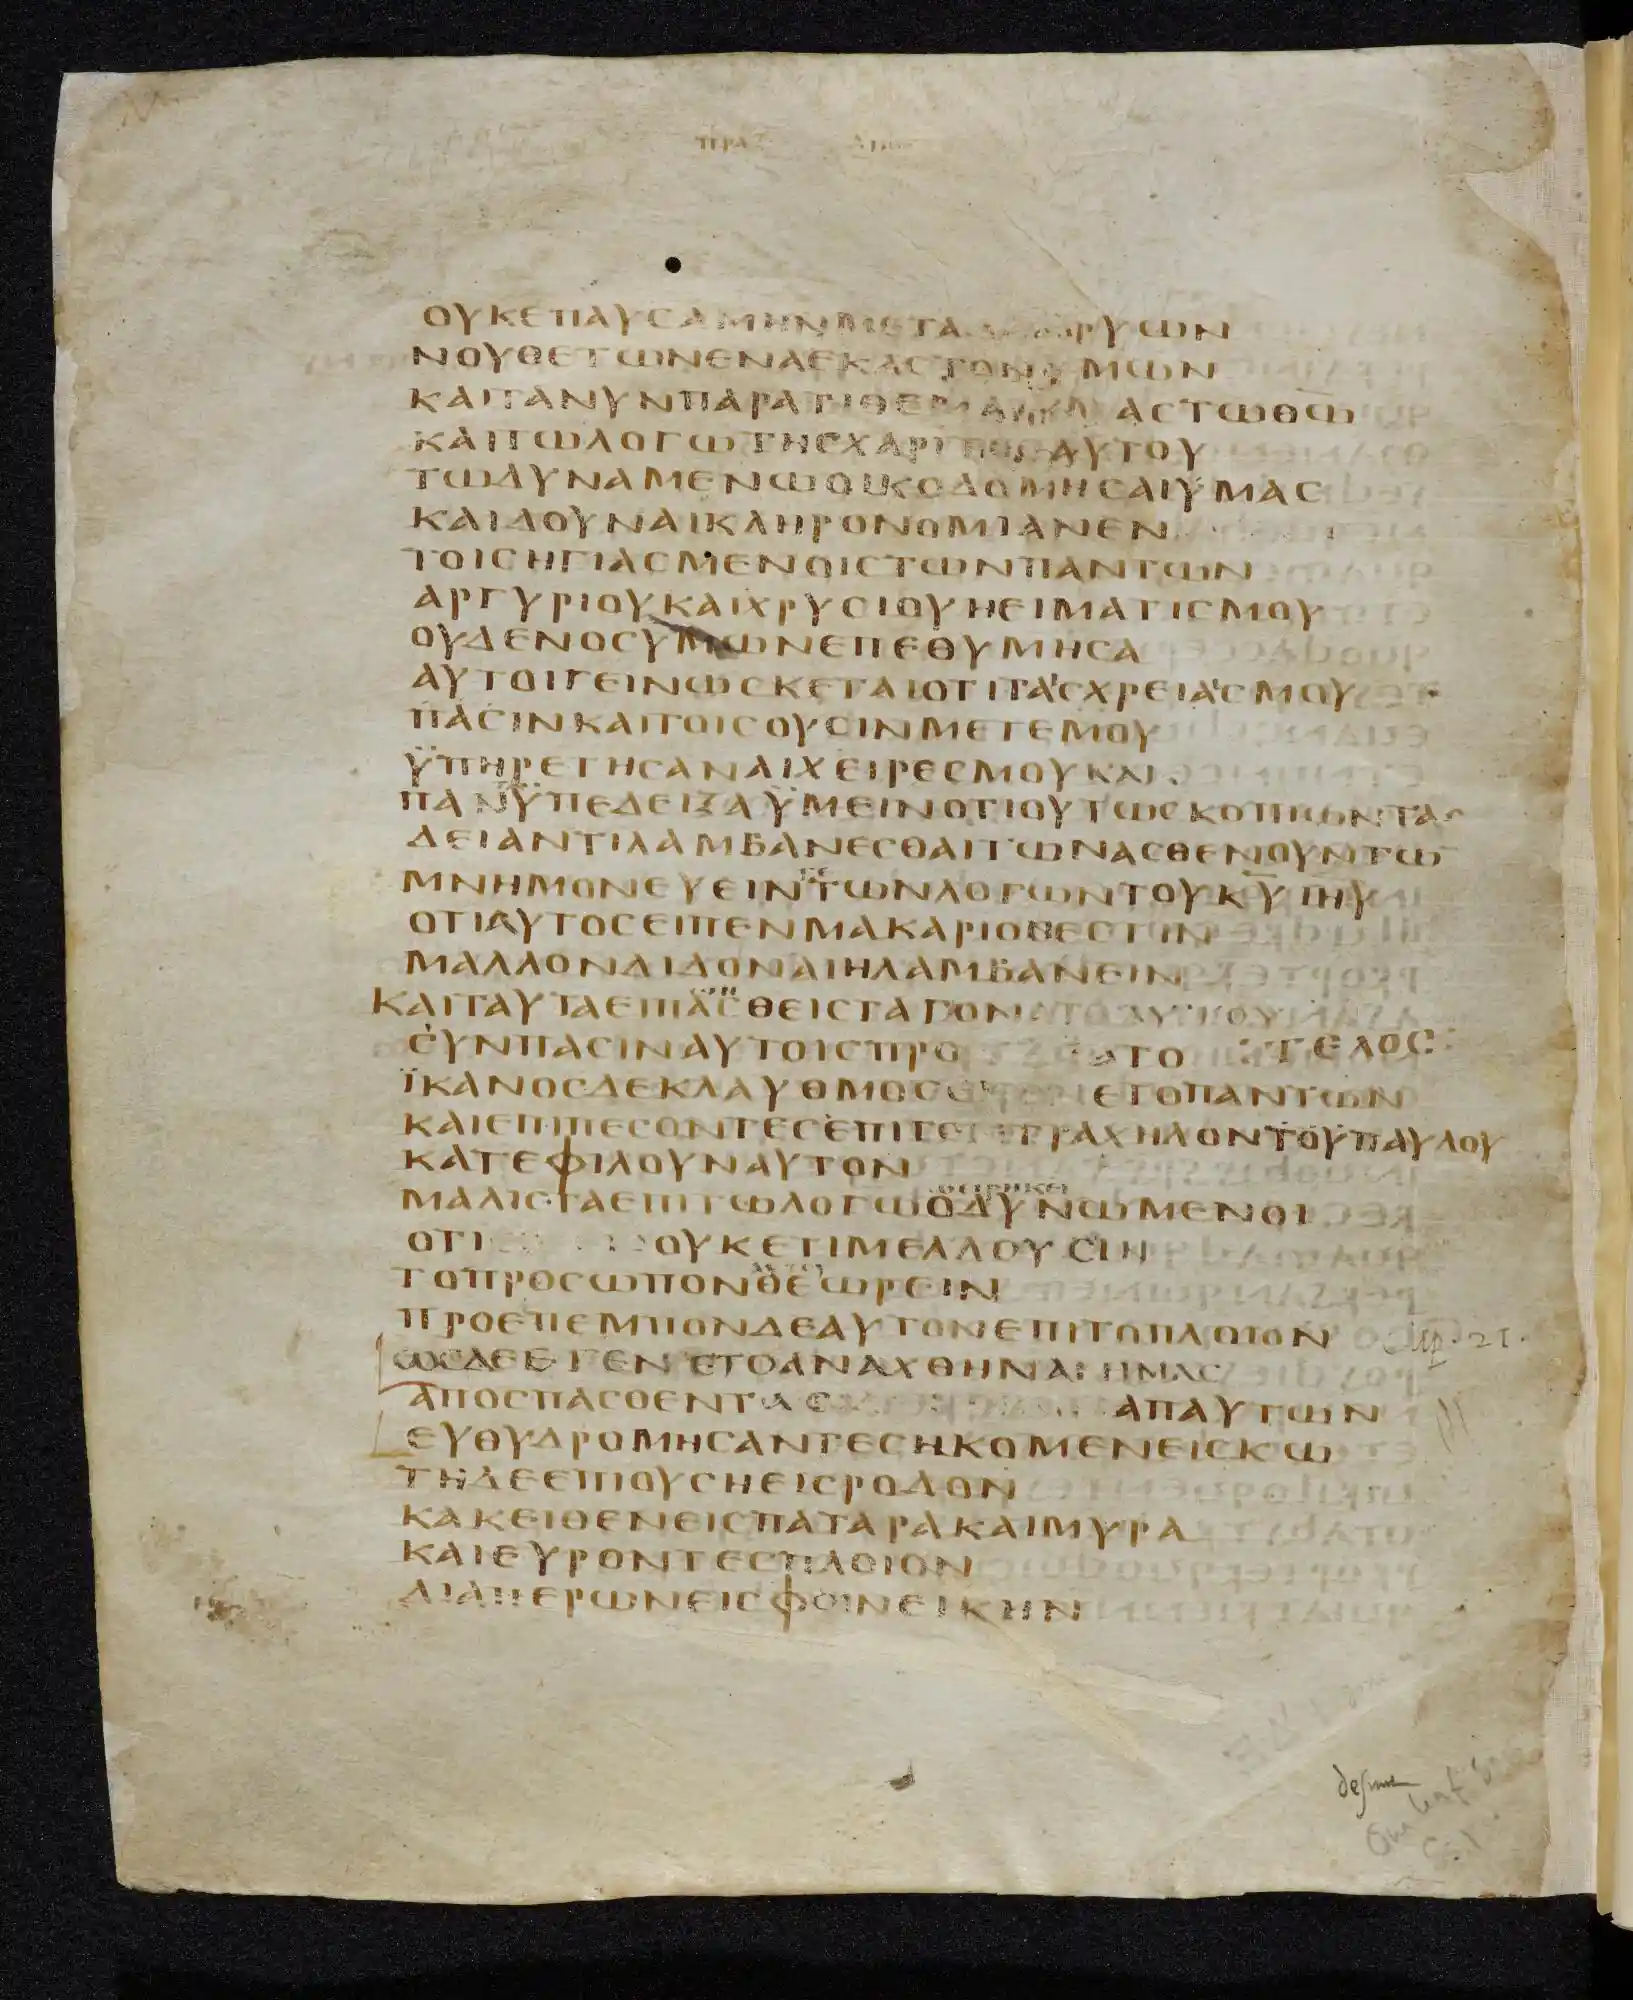 ΟΥΚΕΠΑΥСΑΜΗΝΜΕΤΑΔΑΚΡΥΩΝ
ΝΟΥΘΕΤΩΝΕΝΑΕΚΑСΤΟΝΥΜΩΝ
ΚΑΙΤΑΝΥΝΠΑΡΑΤΙΘΕΜΑΙΥΜΑСΤΩΘΩ
ΚΑΙΤΩΛΟΓΩΤΗСΧΑΡΙΤΟСΑΥΤΟΥ
ΤΩΔΥΝΑΜΕΝΩΟΙΚΟΔΟΜΗСΑΙΥΜΑС
ΚΑΙΔΟΥΝΑΙΚΛΗΡΟΝΟΜΙΑΝΕΝ
ΤΟΙСΗΓΙΑСΜΕΝΟΙСΤΩΝΠΑΝΤΩΝ
ΑΡΓΥΡΙΟΥΚΑΙΧΡΥСΙΟΥΗΕΙΜΑΤΙСΜΟΥ
ΟΥΔΕΝΟСΥΜΩΝΕΠΕΘΥΜΗСΑ
ΑΥΤΟΙΓΕΙΝΩСΚΕΤΑΙΟΤΙΤΑСΧΡΕΙΑСΜΟΥ
ΠΑСΙΝΚΑΙΤΟΙСΟΥСΙΝΜΕΤΕΜΟΥ
ΫΠΗΡΕΤΗСΑΝΑΙΧΕΙΡΕСΜΟΥΚΑΙ
ΠΑΝΫΠΕΔΕΙΞΑΫΜΕΙΝΟΤΙΟΥΤΩСΚΟΠΙΩΝΤΑС
ΔΕΙΑΝΤΙΛΑΜΒΑΝΕСΘΑΙΤΩΝΑСΘΕΝΟΥΝΤΩ
ΜΝΗΜΟΝΕΥΕΙΝΤΩΝΛΟΓΩΝΤΟΥΚΥΙΗΥ
ΟΤΙΑΥΤΟСΕΙΠΕΝΜΑΚΑΡΙΟΝΕСΤΙΝ
ΜΑΛΛΟΝΔΙΔΟΝΑΙΗΛΑΜΒΑΝΕΙΝ
ΚΑΙΤΑΥΤΑΕΙΠΑСΘΕΙСΤΑΓΟΝΑΤΑΑΥΤΟΥ
СΥΝΠΑСΙΝΑΥΤΟΙСΠΡΟ ΑΤΟ ΤΕΛΟС
ΪΚΑΝΟСΔΕΚΛΑΥΘΜΟС ΕΤΟΠΑΝΤΩΝ
ΚΑΙΕΠΙΠΕСΟΝΤΕСΕΠΙΤΟΝΤΡΑΧΗΛΟΝΤΟΥΠΑΥΛΟΥ
ΚΑΤΕΦΙΛΟΥΝΑΥΤΟΝ
ΜΑΛΙСΤΑΕΠΙΤΩΛΟΓΩΟΔΥΝΩΜΕΝΟΙ
ΟΤΙ ΟΥΚΕΤΙΜΕΛΛΟΥСΙΝ
ΤΟΠΡΟСΩΠΟΝΘΕΩΡΕΙΝ
ΠΡΟΕΠΕΜΠΟΝΔΕΑΥΤΟΝΕΠΙΤΟΠΛΟΙΟΝ
ΩСΔΕΕΓΕΝΕΤΟΑΝΑΧΘΗΝΑΙΗΜΑС
ΑΠΟСΠΑСΘΕΝΤΑС ΑΠΑΥΤΩΝ
ΕΥΘΥΔΡΟΜΗСΑΝΤΕСΗΚΟΜΕΝΕΙСΚΩ
ΤΗΔΕΕΠΙΟΥСΗΕΙСΡΟΔΟΝ
ΚΑΚΕΙΘΕΝΕΙСΠΑΤΑΡΑΚΑΙΜΥΡΑ
ΚΑΙΕΥΡΟΝΤΕСΠΛΟΙΟΝ
ΔΙΑΠΕΡΩΝΕΙСΦΟΙΝΕΙΚΗΝ